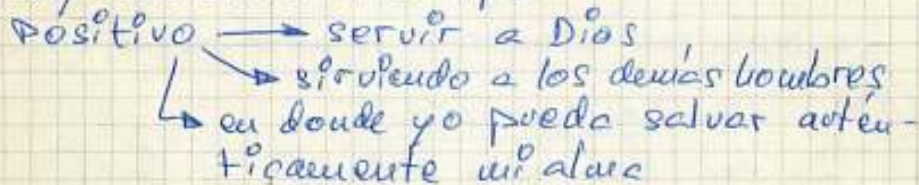 Positivo → servir a Dios
→ sirviendo a los demás hombres
→ en donde yo pueda salvar autén-
ticamente mi alma